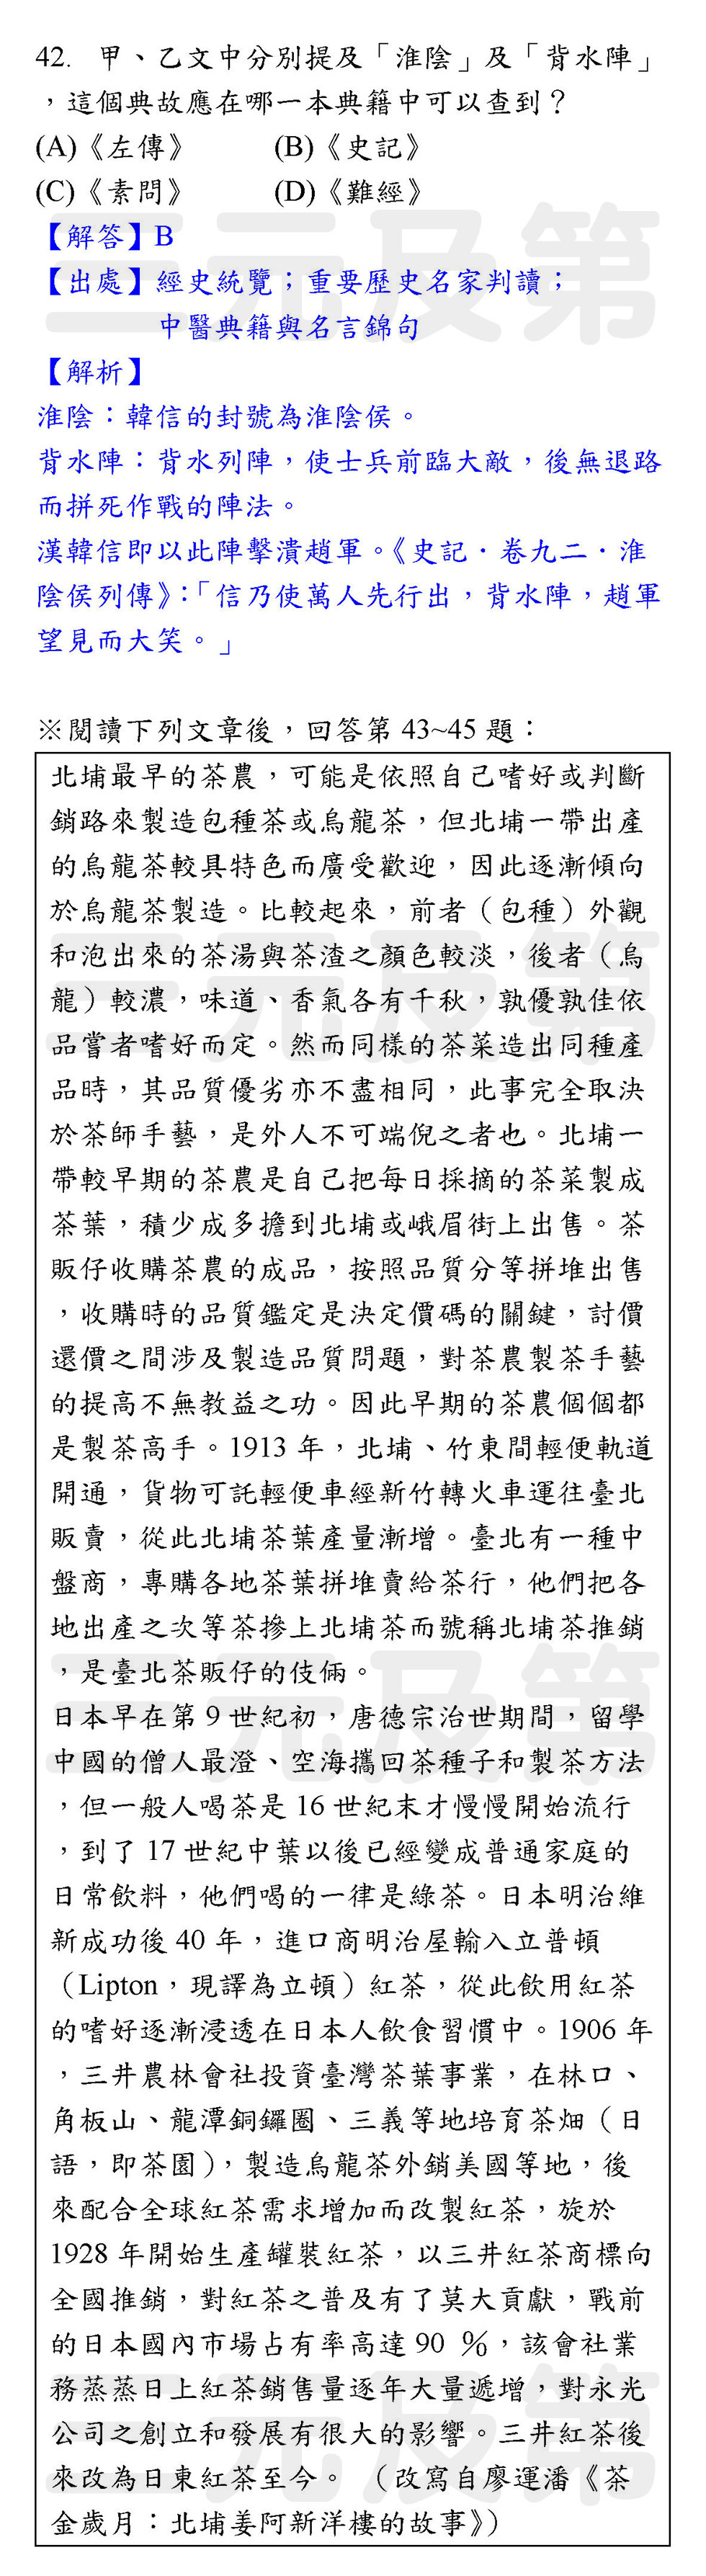 42. 甲、乙文中分別提及「淮陰」及「背水陣」
，這個典故應在哪一本典籍中可以查到？
(A)《左傳》 (B)《史記》
(C)《素問》 (D)《難經》
【解答】B
【出處】經史統覽；重要歷史名家判讀；
中醫典籍與名言錦句
【解析】
淮陰：韓信的封號為淮陰侯。
背水陣：背水列陣，使士兵前臨大敵，後無退路
而拼死作戰的陣法。
漢韓信即以此陣擊潰趙軍。《史記．卷九二．淮
陰侯列傳》：「信乃使萬人先行出，背水陣，趙軍
望見而大笑。」
※閱讀下列文章後，回答第 43~45 題：
北埔最早的茶農，可能是依照自己嗜好或判斷
銷路來製造包種茶或烏龍茶，但北埔一帶出產
的烏龍茶較具特色而廣受歡迎，因此逐漸傾向
於烏龍茶製造。比較起來，前者（包種）外觀
和泡出來的茶湯與茶渣之顏色較淡，後者（烏
龍）較濃，味道、香氣各有千秋，孰優孰佳依
品嘗者嗜好而定。然而同樣的茶菜造出同種產
品時，其品質優劣亦不盡相同，此事完全取決
於茶師手藝，是外人不可端倪之者也。北埔一
帶較早期的茶農是自己把每日採摘的茶菜製成
茶葉，積少成多擔到北埔或峨眉街上出售。茶
販仔收購茶農的成品，按照品質分等拼堆出售
，收購時的品質鑑定是決定價碼的關鍵，討價
還價之間涉及製造品質問題，對茶農製茶手藝
的提高不無教益之功。因此早期的茶農個個都
是製茶高手。1913 年，北埔、竹東間輕便軌道
開通，貨物可託輕便車經新竹轉火車運往臺北
販賣，從此北埔茶葉產量漸增。臺北有一種中
盤商，專購各地茶葉拼堆賣給茶行，他們把各
地出產之次等茶摻上北埔茶而號稱北埔茶推銷
，是臺北茶販仔的伎倆。
日本早在第 9 世紀初，唐德宗治世期間，留學
中國的僧人最澄、空海攜回茶種子和製茶方法
，但一般人喝茶是 16 世紀末才慢慢開始流行
，到了 17 世紀中葉以後已經變成普通家庭的
日常飲料，他們喝的一律是綠茶。日本明治維
新成功後 40 年，進口商明治屋輸入立普頓
（Lipton，現譯為立頓）紅茶，從此飲用紅茶
的嗜好逐漸浸透在日本人飲食習慣中。1906 年
，三井農林會社投資臺灣茶葉事業，在林口、
角板山、龍潭銅鑼圈、三義等地培育茶畑（日
語，即茶園），製造烏龍茶外銷美國等地，後
來配合全球紅茶需求增加而改製紅茶，旋於
1928 年開始生產罐裝紅茶，以三井紅茶商標向
全國推銷，對紅茶之普及有了莫大貢獻，戰前
的日本國內市場占有率高達 90 ％，該會社業
務蒸蒸日上紅茶銷售量逐年大量遞增，對永光
公司之創立和發展有很大的影響。三井紅茶後
來改為日東紅茶至今。（改寫自廖運潘《茶
金歲月：北埔姜阿新洋樓的故事》）
三元及第
三元及第
三元及第
三元及第